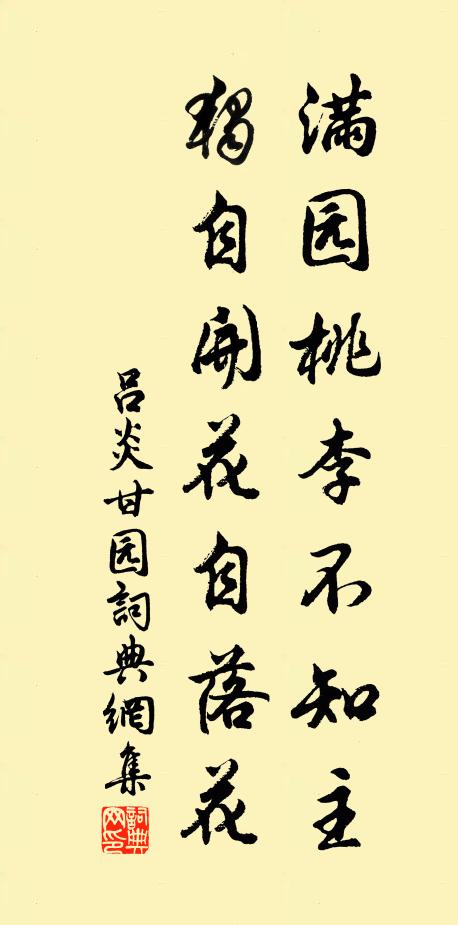 满园桃李不知主
独自开花自落花
吕炎甘园詞典網集
詞典网印